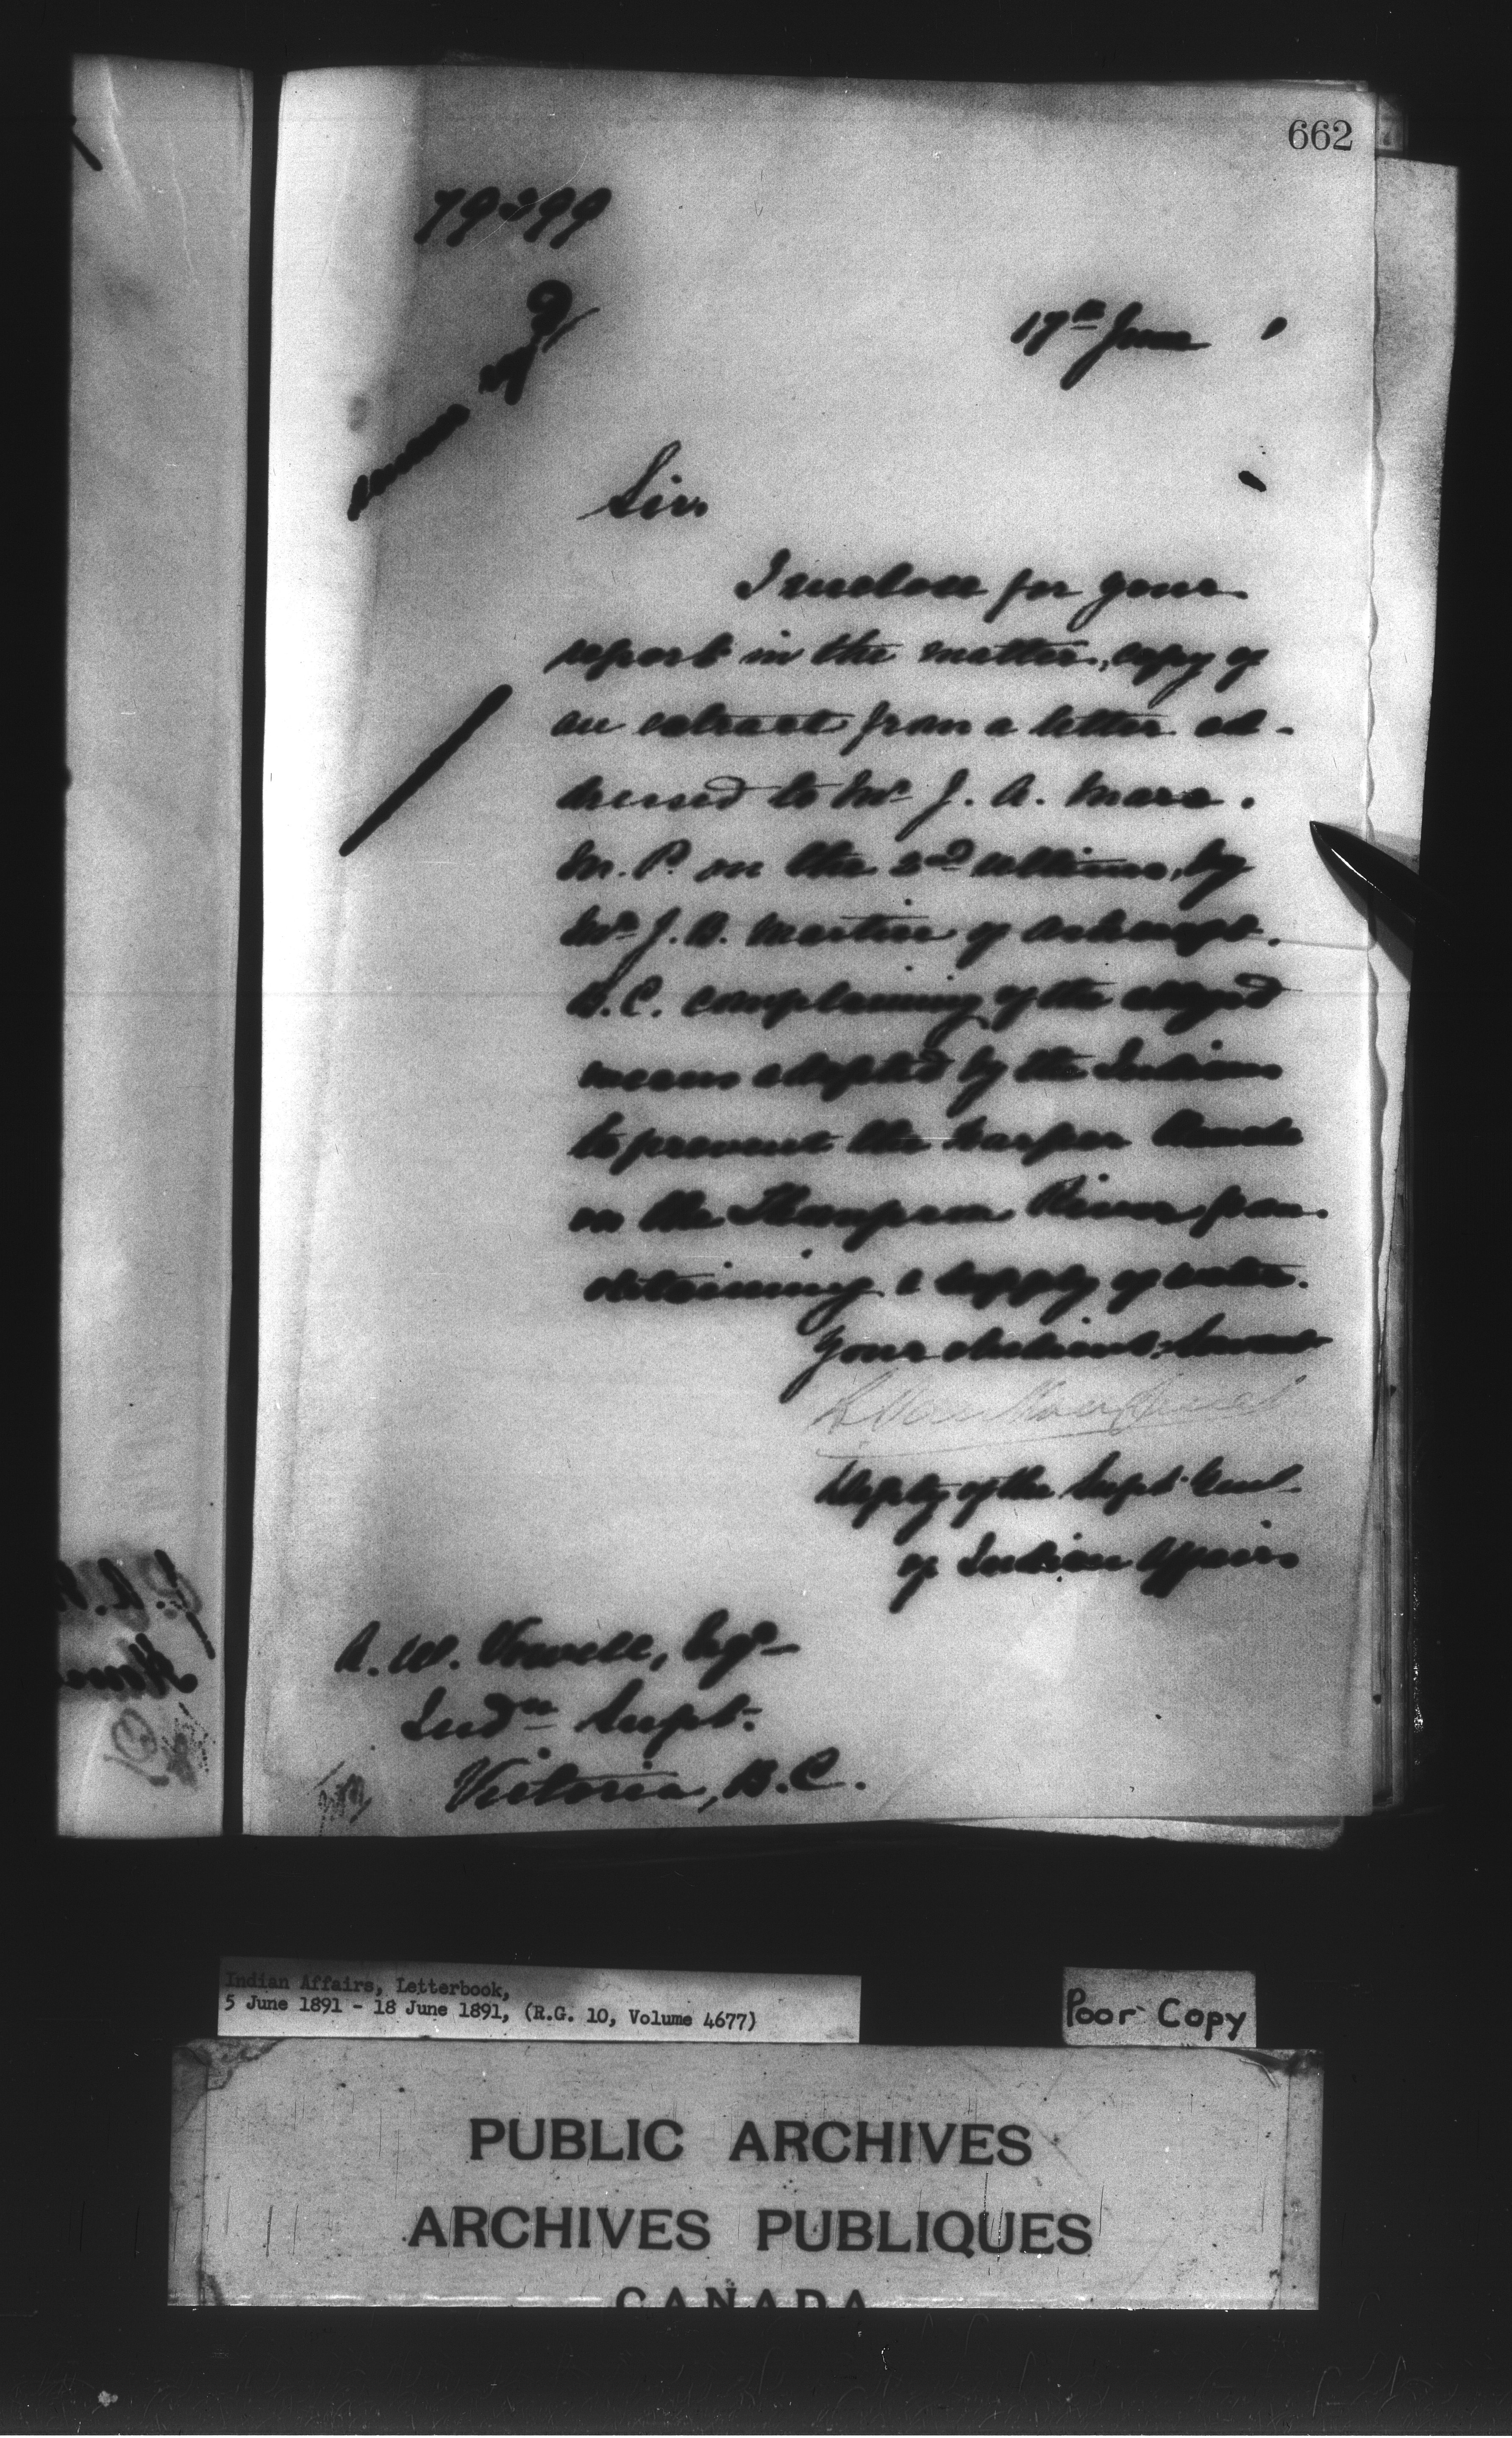 662
17th June 1
Sir,
I enclose for your
report in the matter, copy of
an extract from a letter ad-
dressed to Mr J. A. Mara.
M.P. on the 2nd ultimo, by
Mr J. B. Martin of Ashcroft.
B.C. complaining of the alleged
means adopted by the Indians
to prevent the Harper Lands
on the Thompson River from
obtaining a supply of water.
Your obedient servant
L. Van Koughnet
Depty of the Supt. Genl.
of Indian Affairs
A. W. Vowell, Esqr
Indn Supt.
Victoria, B.C.
Indian Affairs, Letterbook,
5 June 1891 - 18 June 1891, (R.G. 10, Volume 4677)
Poor Copy
PUBLIC ARCHIVES
ARCHIVES PUBLIQUES
CANADA